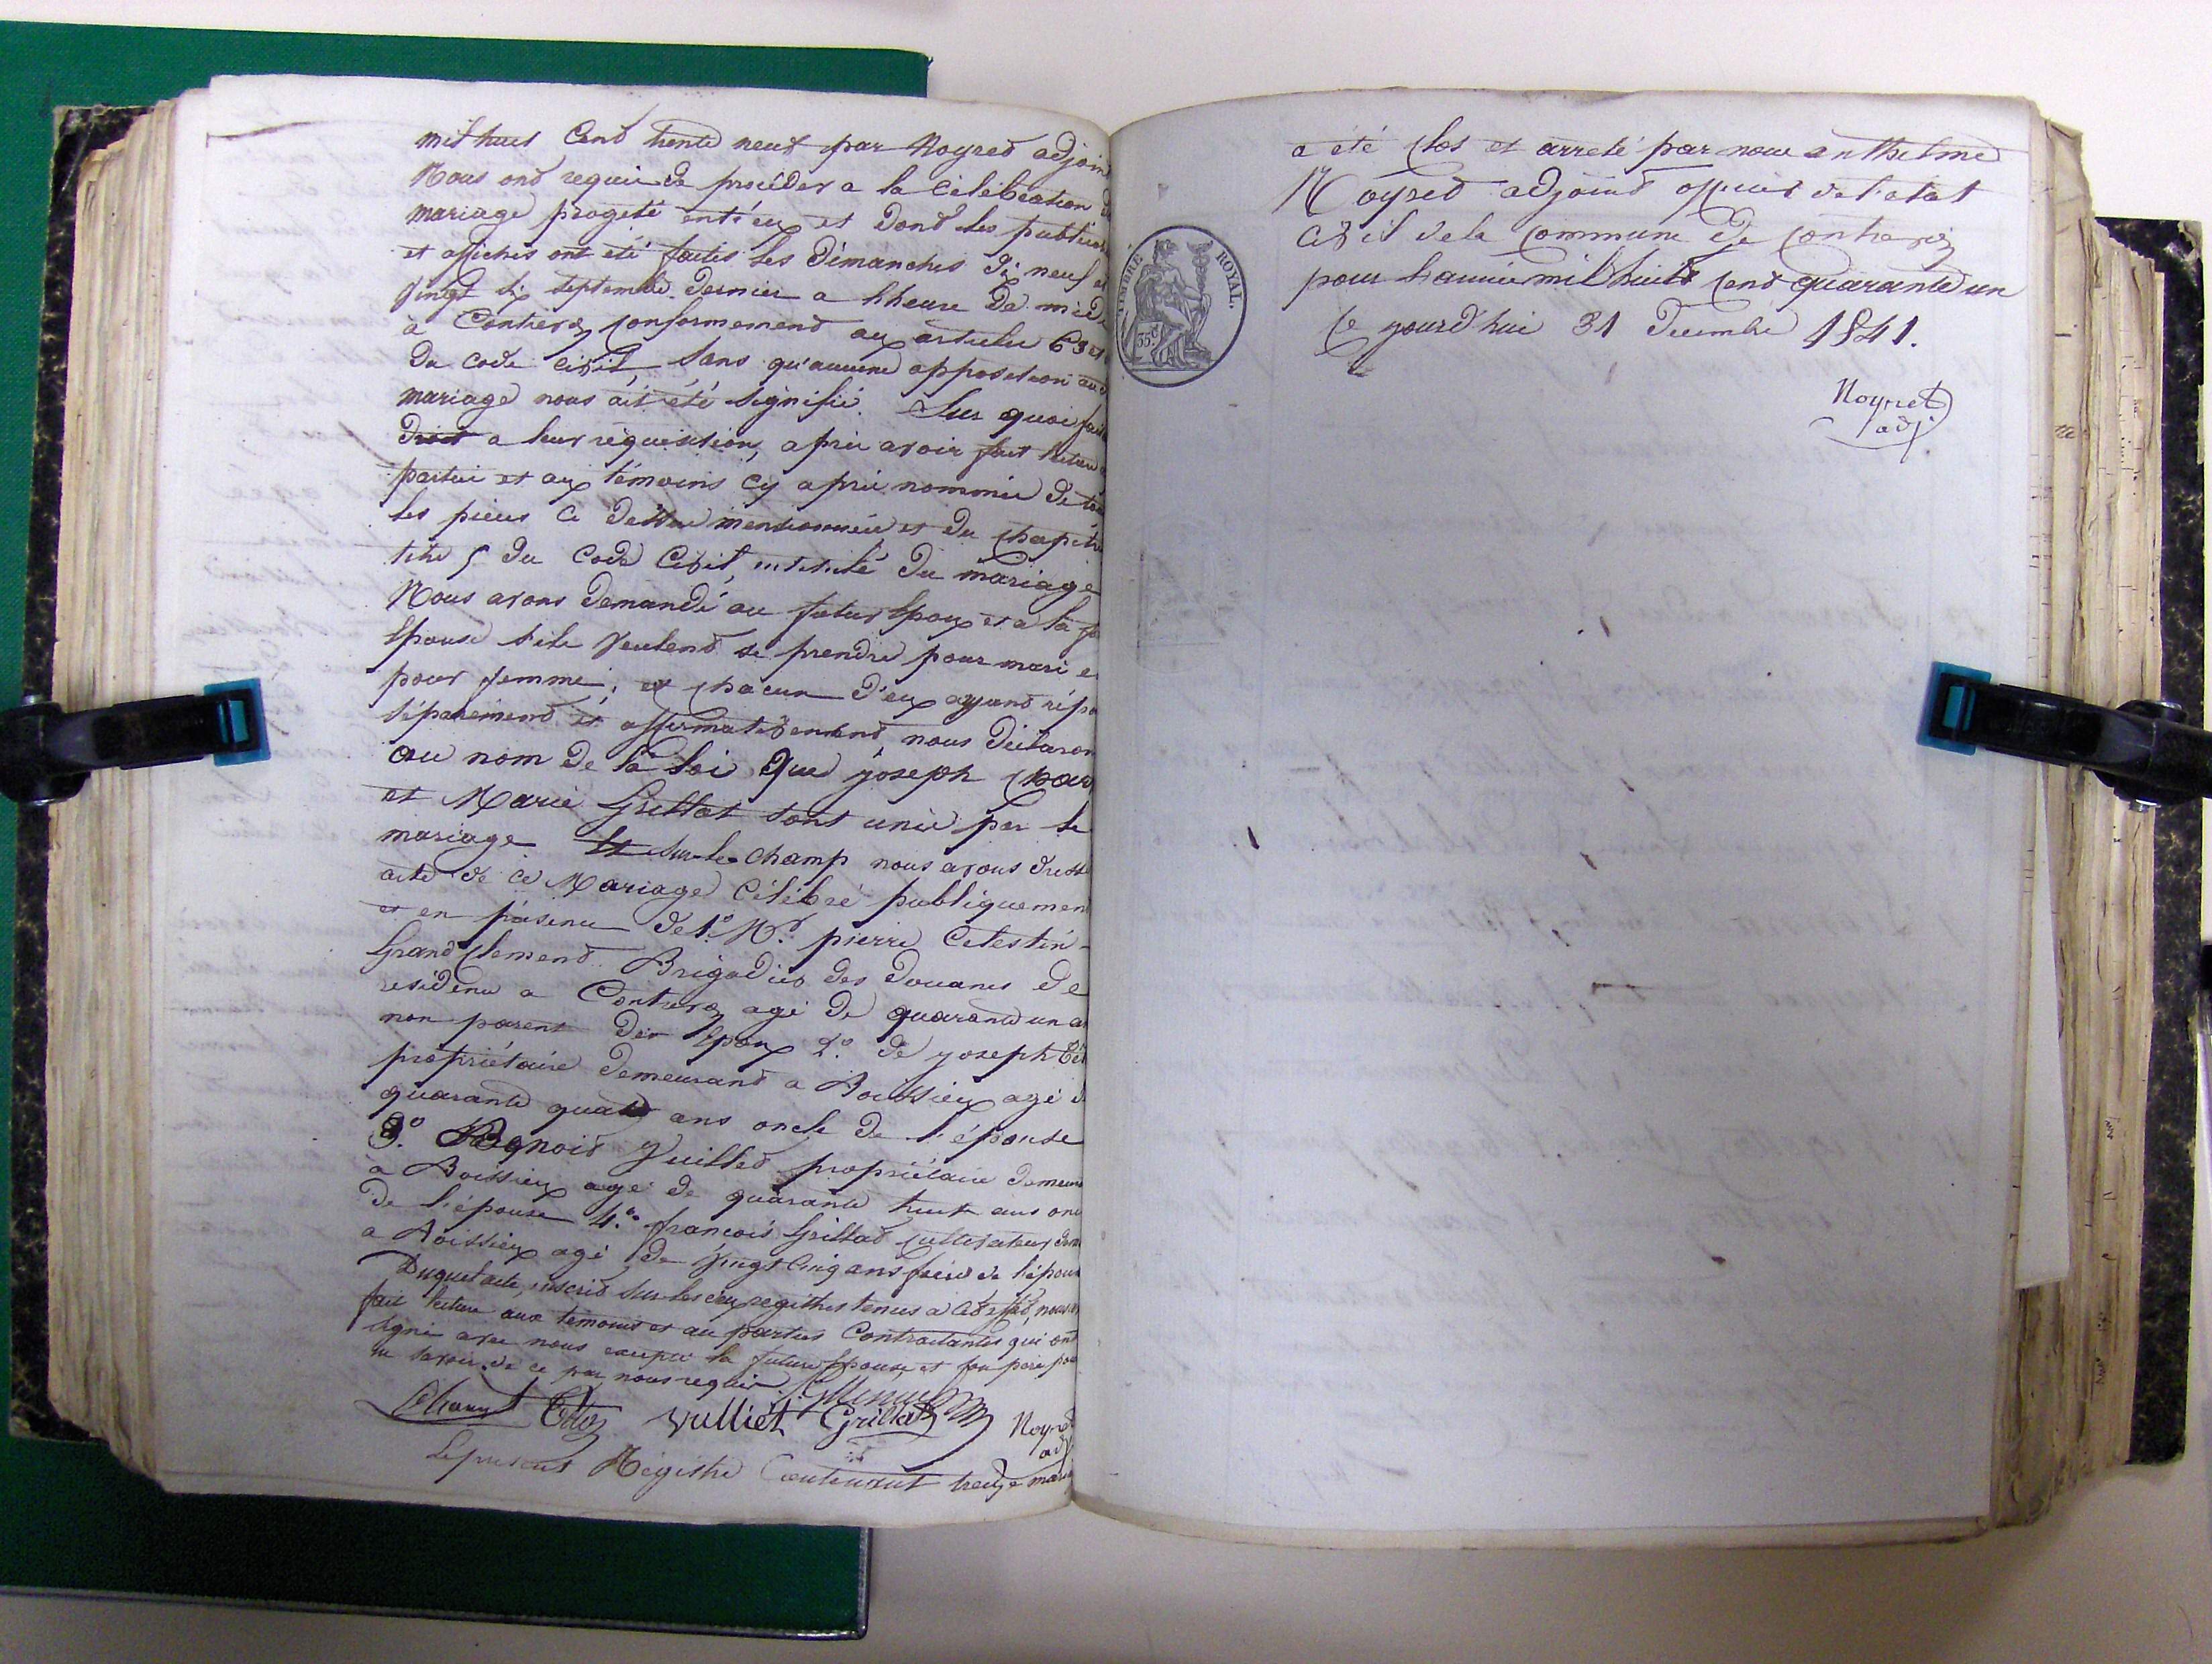 mil huit Cent trente neuf par Noyret adjoin
Nous ont requis de procéder a la Célébration d
mariage progeté entr'eux et dont les publica
et affiches ont été faites les Dimanches dix neuf et
vingt six Septembre dernier a l'heure de midi
à Contrevoz conformement aux articles 63 et
du code civil, sans qu'aucune opposition au d
mariage nous ait été signifié. Sur quoi fais
droit a leur réquisition, après avoir fait lecture
parties et aux témoins cy après nommés de tou
les pièces ci dessus mentionnées et du chapitre
titre 5 du Code Civil, intitulé du mariage
Nous avons demandé au futur Epoux et a la fu
Epouse s'ils veulent se prendre pour mari e
pour femme; et chacun d'eux ayant répo
séparement et affirmativement nous déclaron
au nom de la loi que joseph
et Marie Grillat sont unis par le
mariage Et sur le champ nous avons dressé
acte de ce Mariage Célébré publiquemen
et en présence de 1.º Mr. pierre Celestin
Grand Clement Brigadier des Douanes de
résidence a Contrevoz agé de quarante un a
non parent des Epoux 2.º de joseph
propriétaire demeurant a Boissieu agé d
quarante quatre ans oncle de l'épouse
3.º Vuillet propriétaire demeura
a Boissieu agé de quarante huit ans onc
de l'épouse 4.º françois Grillat cultivateur dem
a Boissieu agé de vingt cinq ans frère de l'épous
Duquel acte, inscrit sur les deux registres tenus a cet effet, nous
fait lecture aux témoins et aux parties Contractantes qui ont
signé avec nous excepté la future Epouse, et son père pou
ne savoir de ce par nous requis
vulliet Grillat Noyret
adj
Le présent Régistre Contenant treize mar
TIMBRE ROYAL.
35c
a été clos et arreté par nous anthelme
Noyret adjoint officier de l'etat
Civil de la Commune de Contrevoz
pour l'année mil huit cent quarante un
Ce jourd'hui 31 Decembre 1841.
Noyret
adj